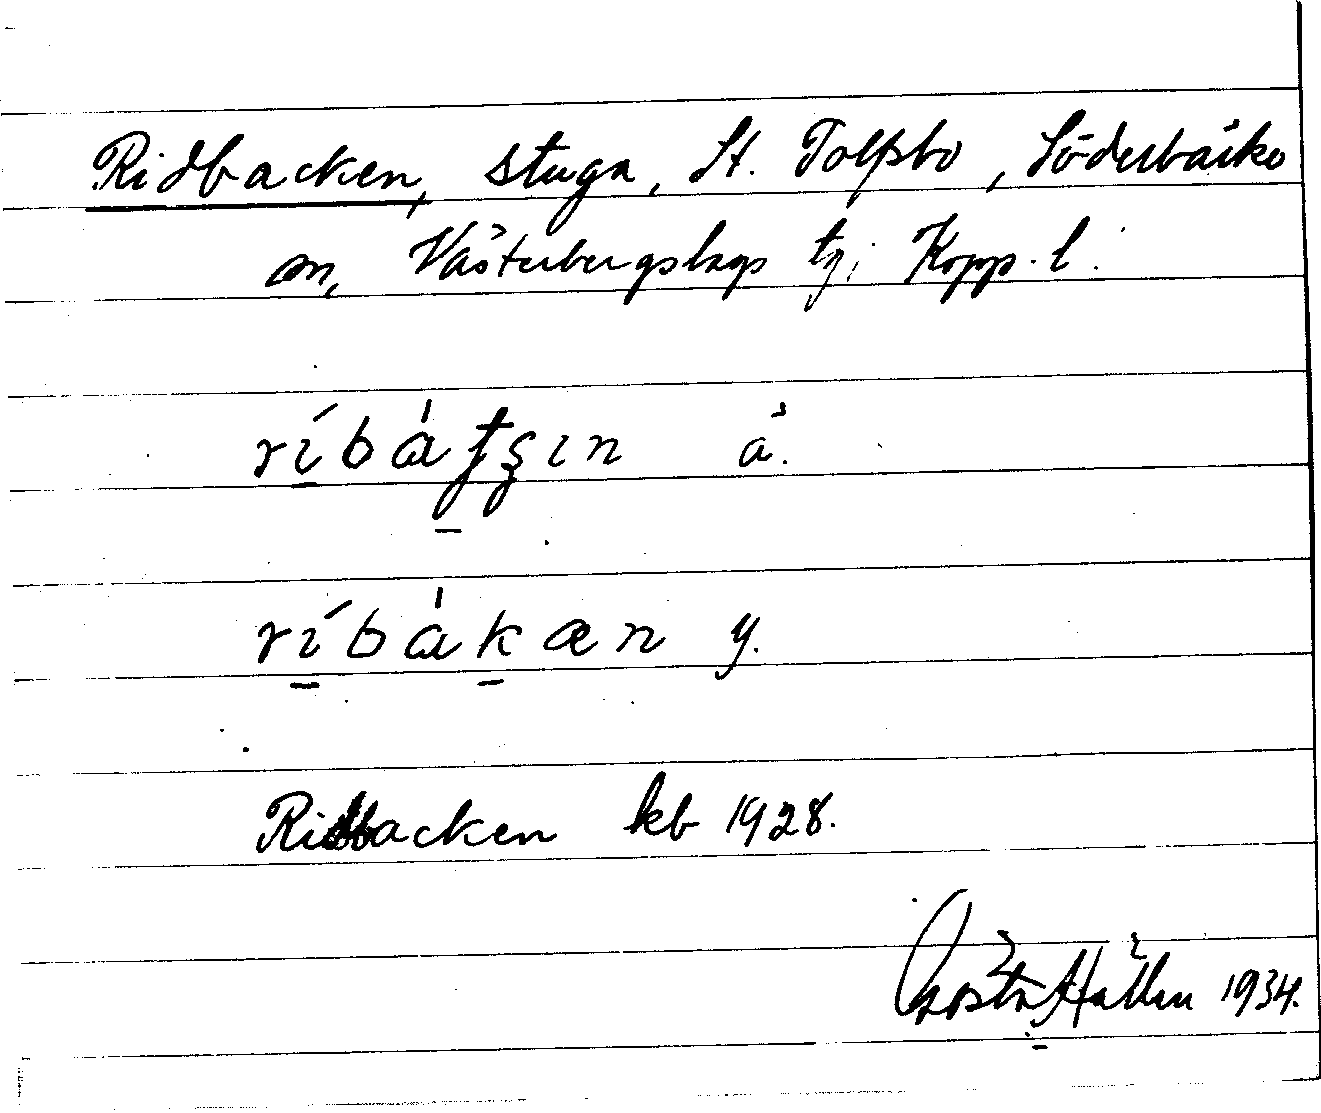 Ridbacken, stuga, St. Tolfsbo, Söderbärke
sn, Västerbergslags tg; Kopp. l.
ríbàtşın ä.
ríbàkæn y.
Ridbacken kb 1928.
Gösta Hallen 1934.